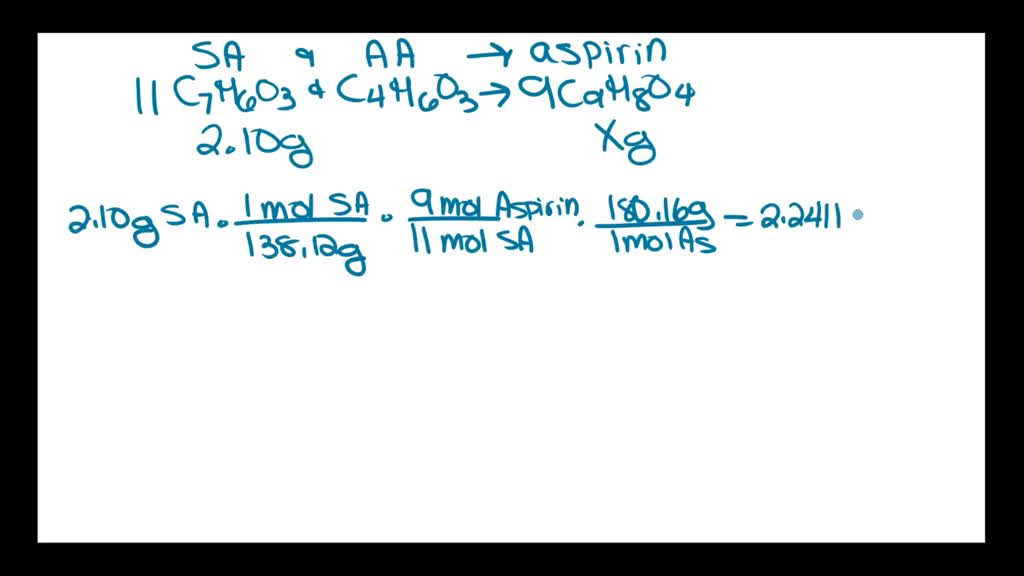 SA & AA → aspirin
11 C7H6O3 & C4H6O3 → 9C9H8O4
2.10g Xg
2.10g SA · 1 mol SA / 138.12g · 9 mol Aspirin / 11 mol SA · 180.16g / 1 mol As = 2.2411